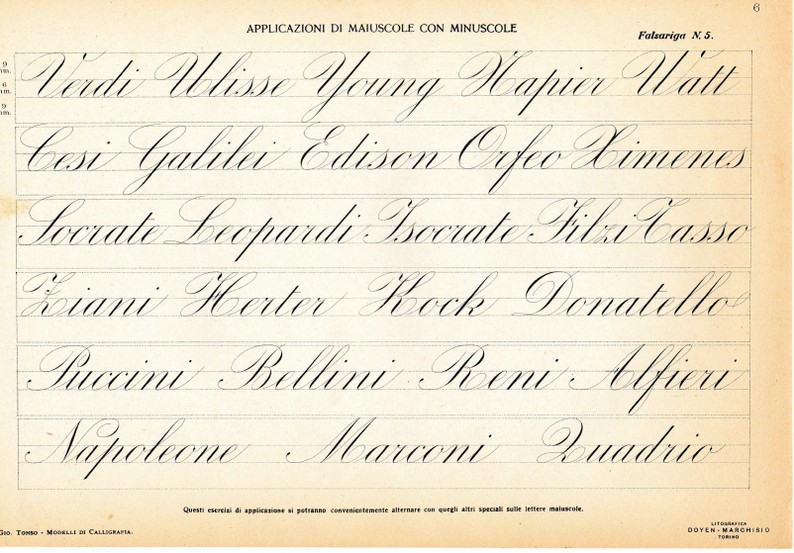 6
APPLICAZIONI DI MAIUSCOLE CON MINUSCOLE
Falsariga N. 5.
9
mm.
6
mm.
9
mm.
Verdi Ulisse Young Napier Watt
Cesi Galilei Edison Orfeo Ximenes
Socrate Leopardi Isocrate Filzi Tasso
Ziani Herter Kock Donatello
Puccini Bellini Reni Alfieri
Napoleone Marconi Quadrio
Questi esercizi di applicazione si potranno convenientemente alternare con quegli altri speciali sulle lettere maiuscole.
Gio. Tonso - Modelli di Calligrafia.
LITOGRAFICA
DOYEN-MARCHISIO
TORINO